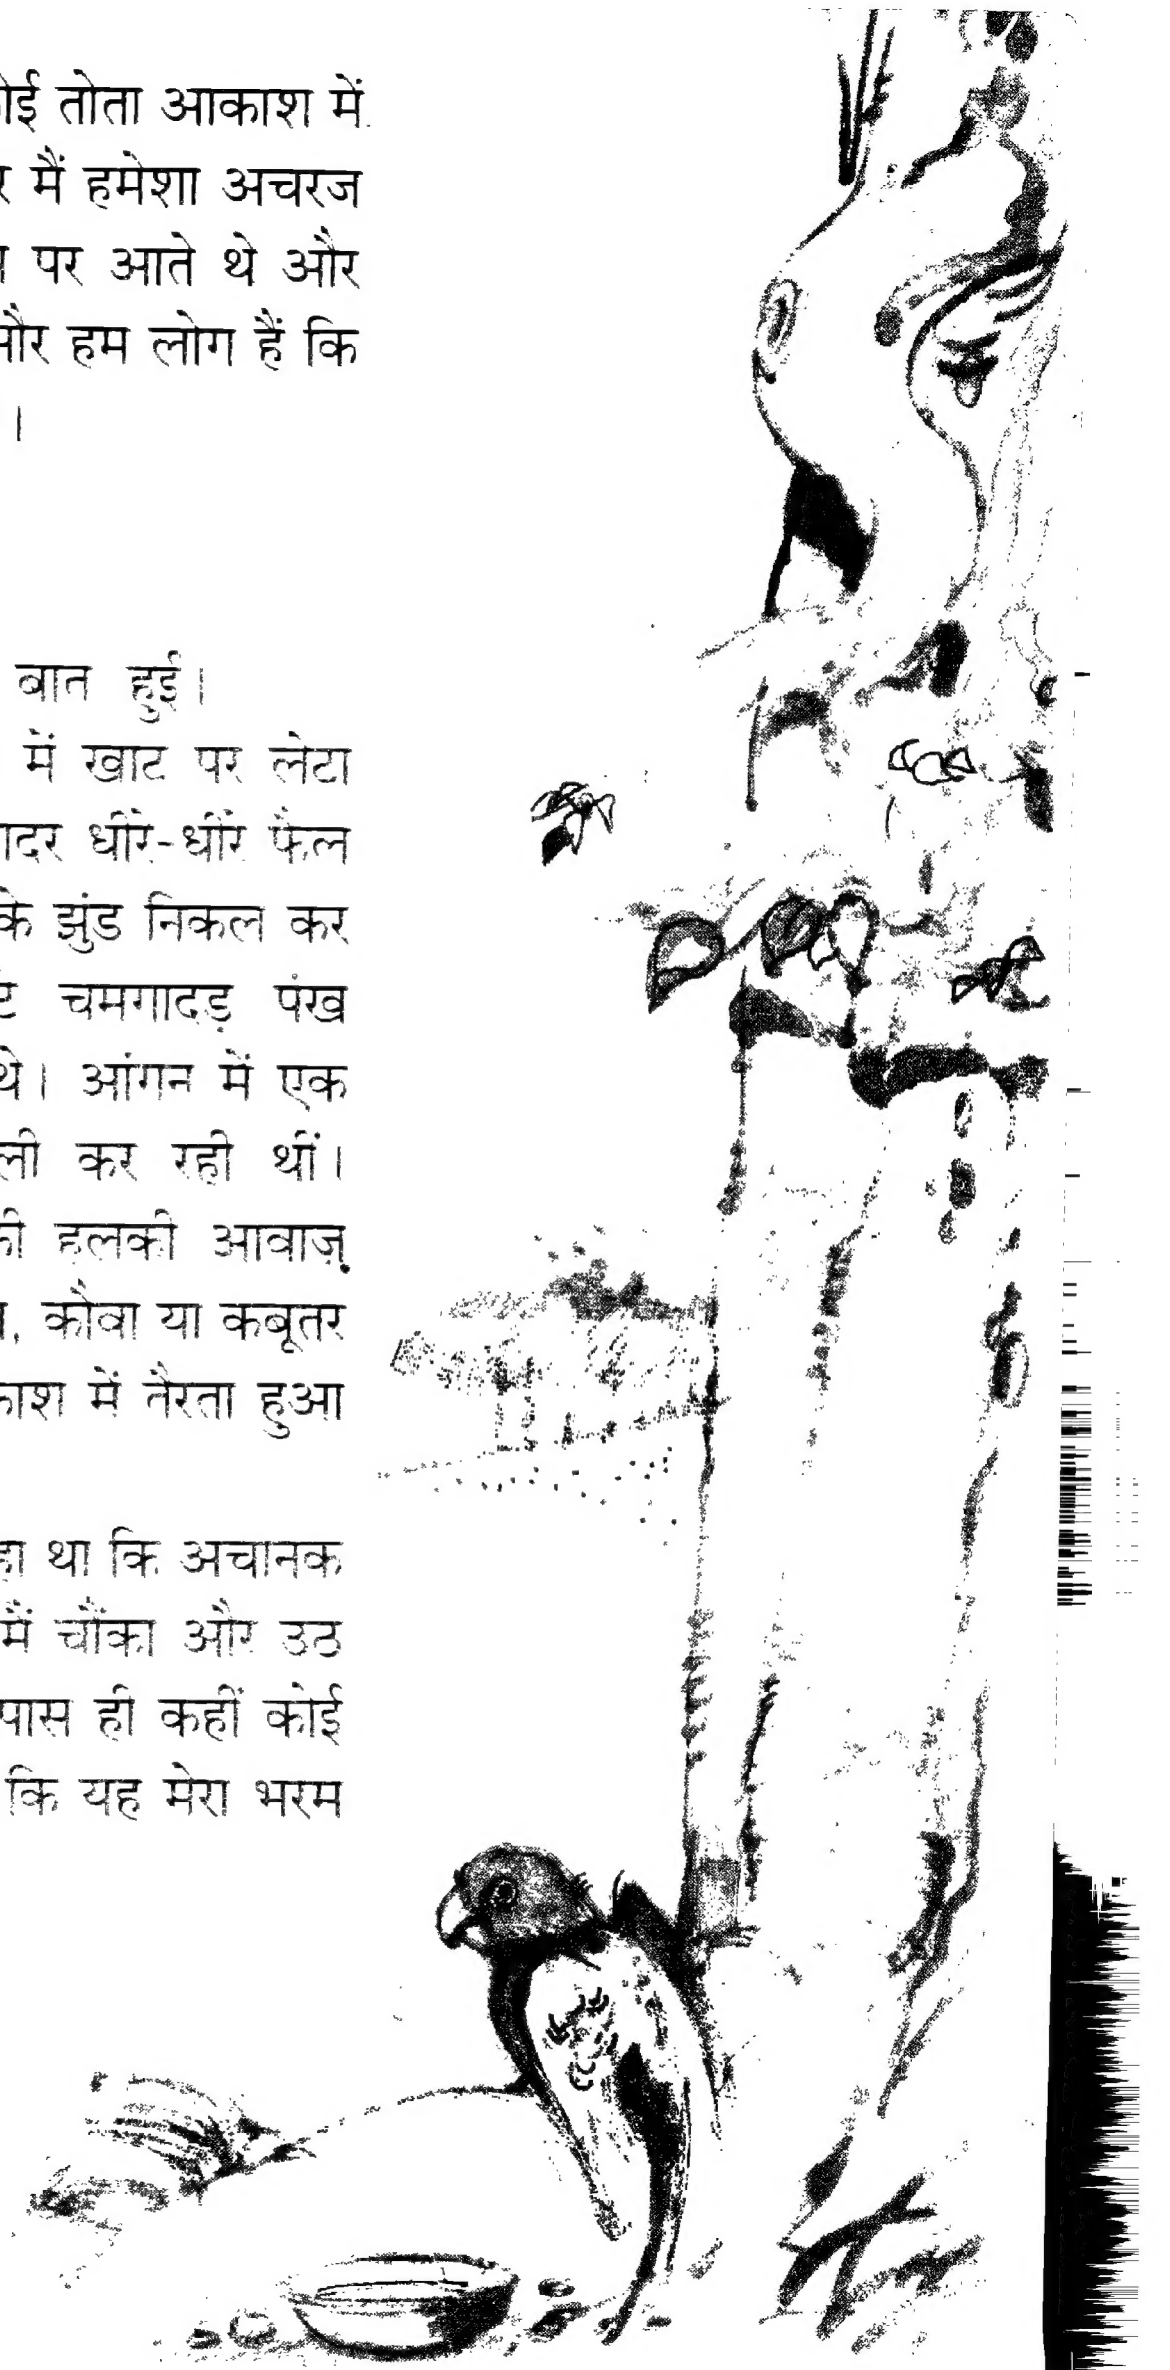 तोता आकाश में
मैं हमेशा अचरज
पर आते थे और
हम लोग हैं कि
।
बात हुई।
में खाट पर लेटा
धीरे-धीरे फैल
के झुंड निकल कर
चमगादड़ पंख
थे। आंगन में एक
कर रही थीं।
हलकी आवाज़
कौवा या कबूतर
में तैरता हुआ
था कि अचानक
मैं चौंका और उठ
पास ही कहीं कोई
कि यह मेरा भरम